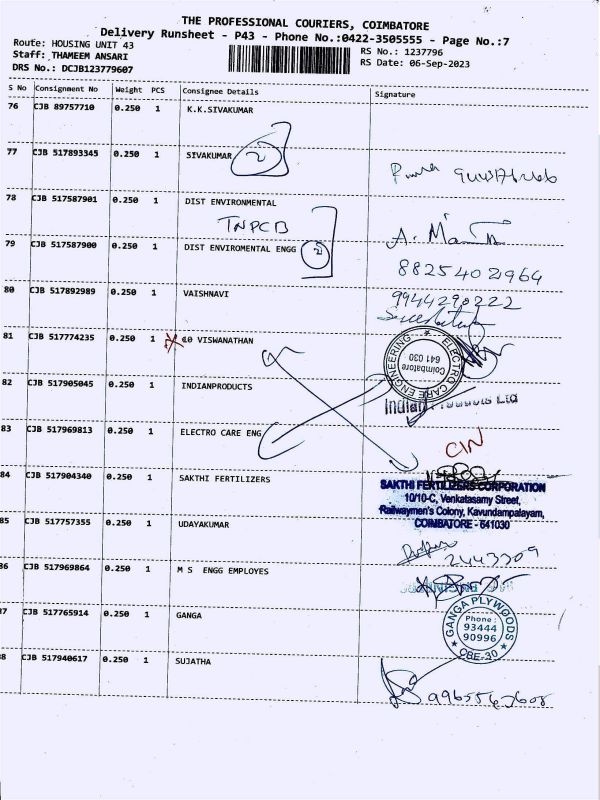 THE PROFESSIONAL COURIERS, COIMBATORE
Delivery Runsheet - P43 - Phone No.:0422-3505555 - Page No.:7
Route: HOUSING UNIT 43
RS No.: 1237796
Staff: THAMEEM ANSARI
RS Date: 06-Sep-2023
DRS No.: DCJB123779607
S No Consignment No Weight PCS Consignee Details Signature
76 CJB 89757710 0.250 1 K.K.SIVAKUMAR
77 CJB 517893345 0.250 1 SIVAKUMAR 2
78 CJB 517587901 0.250 1 DIST ENVIRONMENTAL
TNPCB
79 CJB 517587900 0.250 1 DIST ENVIROMENTAL ENGG 2
8825402964
80 CJB 517892989 0.250 1 VAISHNAVI
9944290222
81 CJB 517774235 0.250 1 c0 VISWANATHAN
ELECTRO CARE ENGINEERING
Coimbatore
641 030
82 CJB 517905045 0.250 1 INDIANPRODUCTS
Indian Products Ltd
83 CJB 517969813 0.250 1 ELECTRO CARE ENG
CIN
84 CJB 517904340 0.250 1 SAKTHI FERTILIZERS
SAKTHI FERTILIZERS CORPORATION
10/10-C, Venkatasamy Street,
Railwaymen's Colony, Kavundampalayam,
COIMBATORE - 641030
85 CJB 517757355 0.250 1 UDAYAKUMAR
2443309
86 CJB 517969864 0.250 1 M S ENGG EMPLOYES
87 CJB 517765914 0.250 1 GANGA
GANGA PLYWOODS
Phone :
93444
90996
CBE-30
88 CJB 517940617 0.250 1 SUJATHA